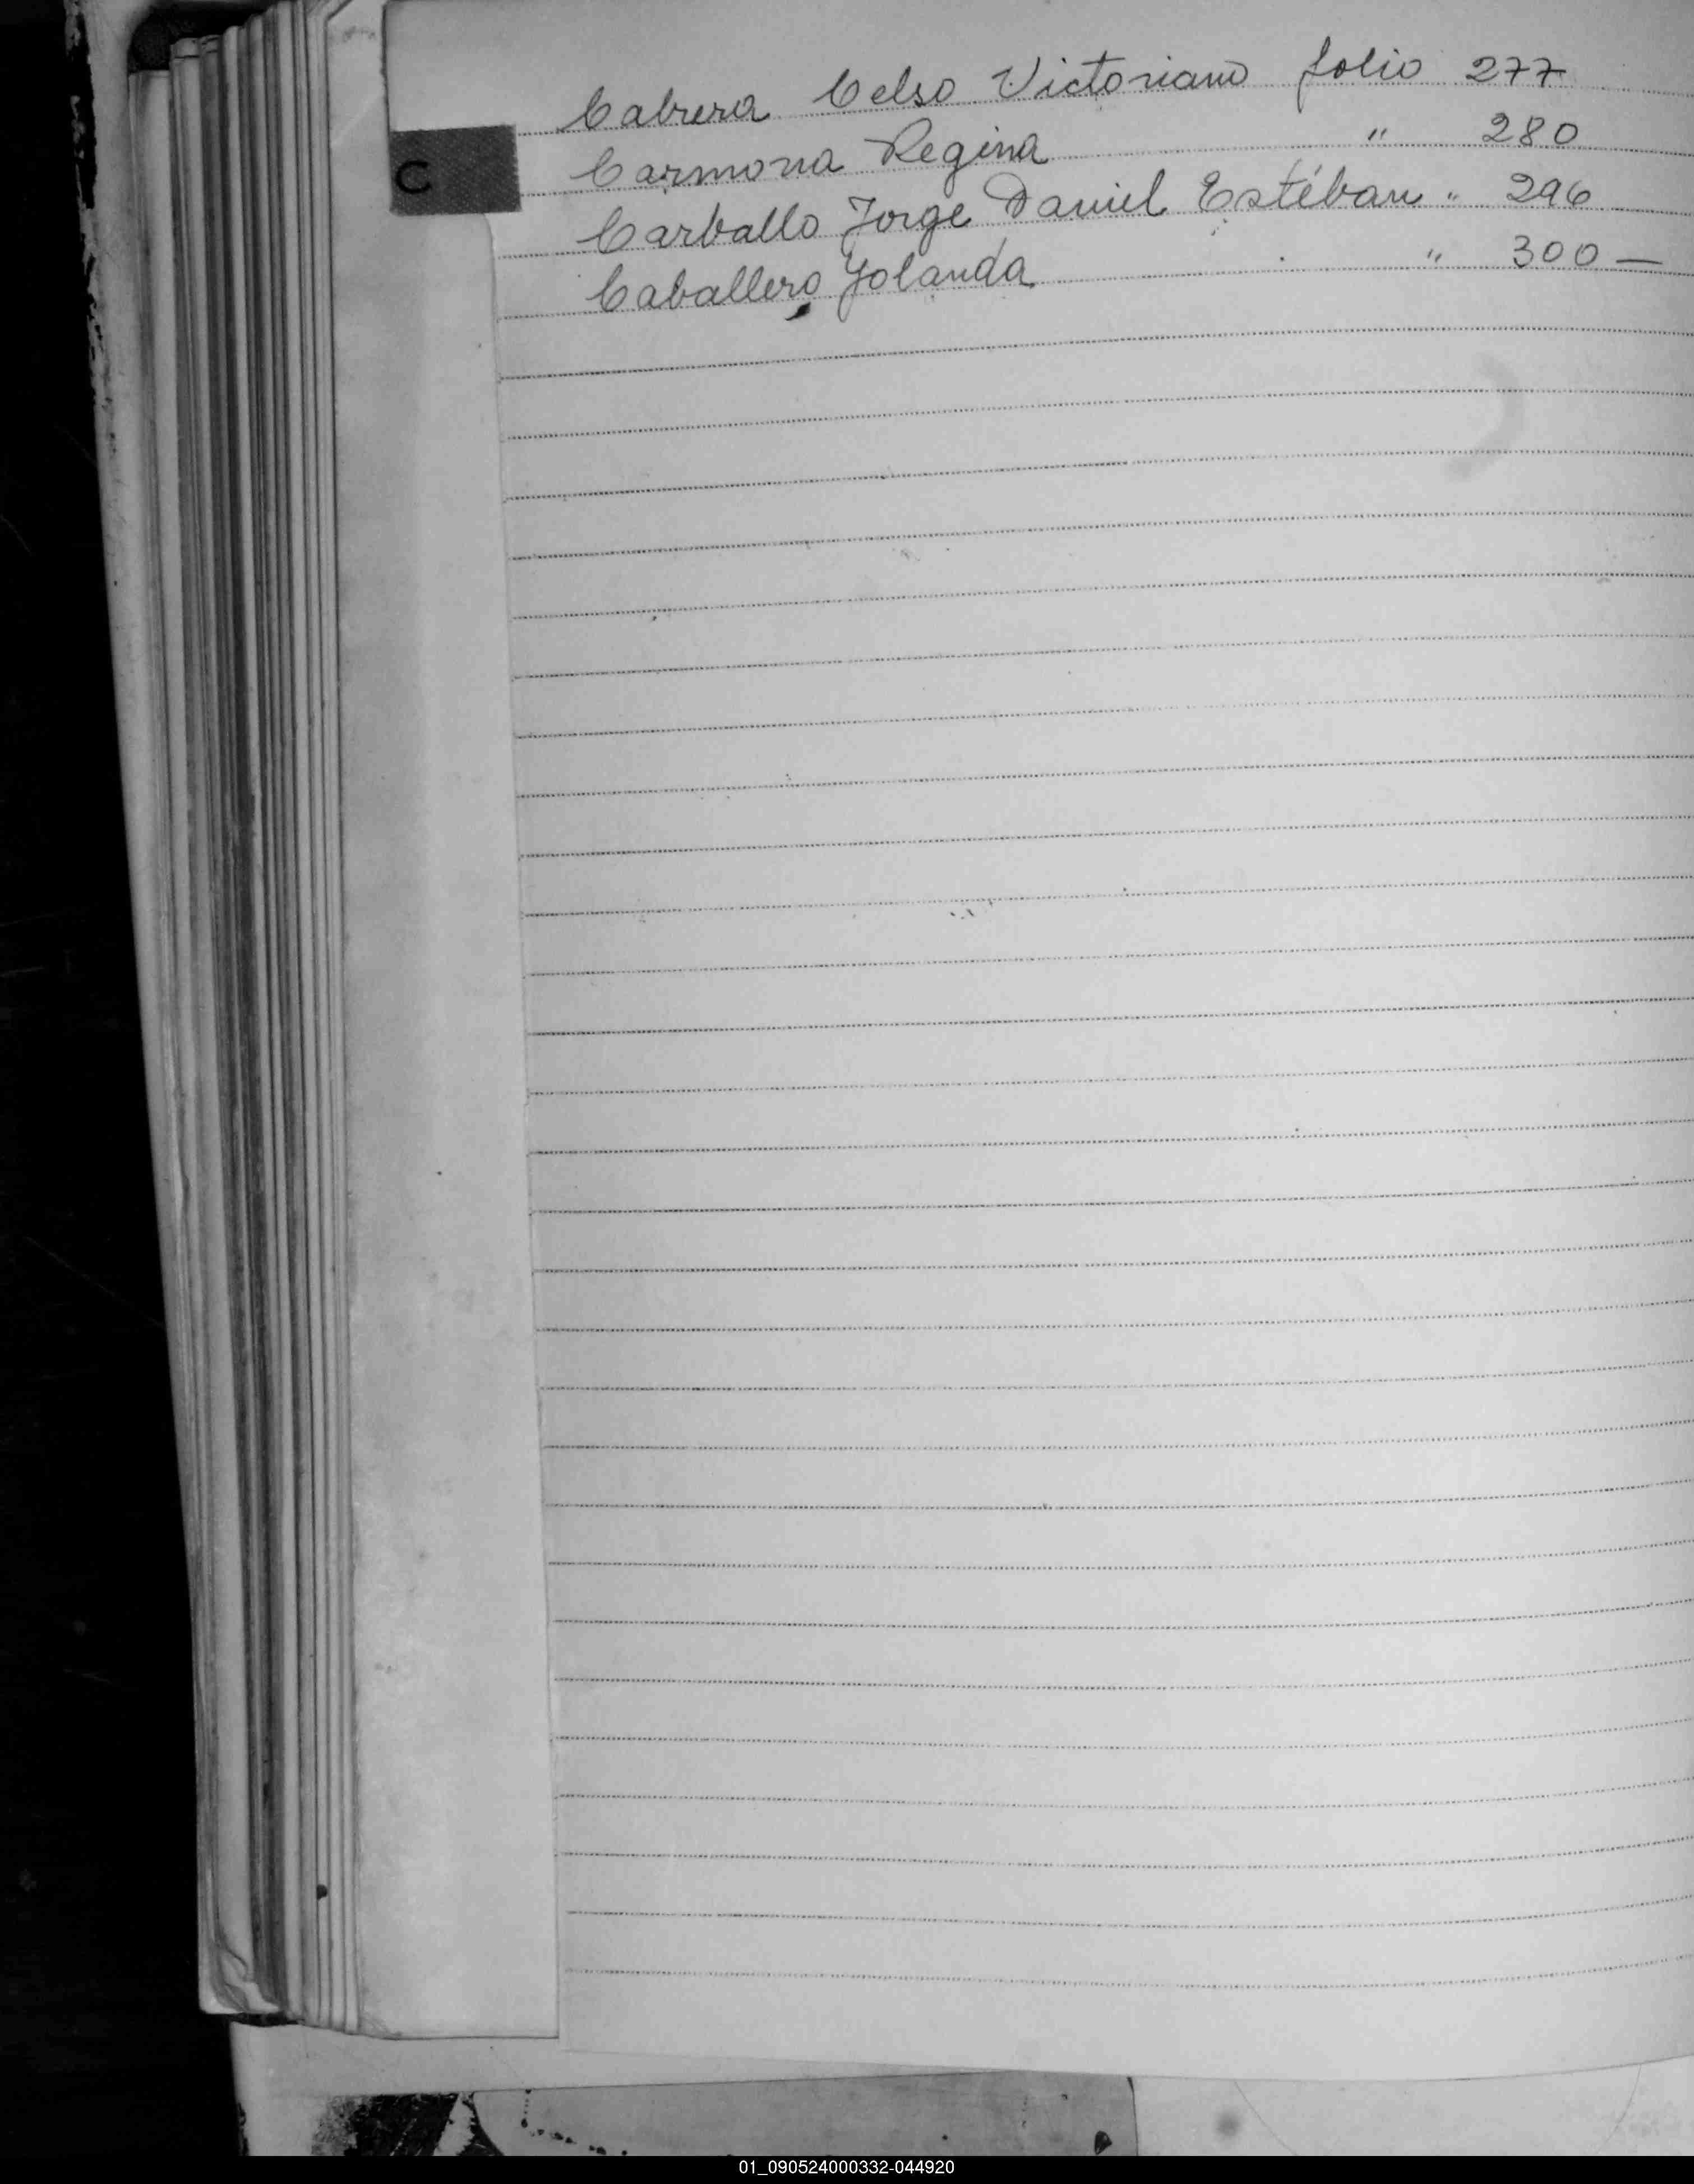 Cabrera Celso Victoriano folio 277
C
Carmona Regina " 280
Carballo Jorge Daniel Estéban " 296
Caballero Yolanda " 300 —
01_090524000332-044920